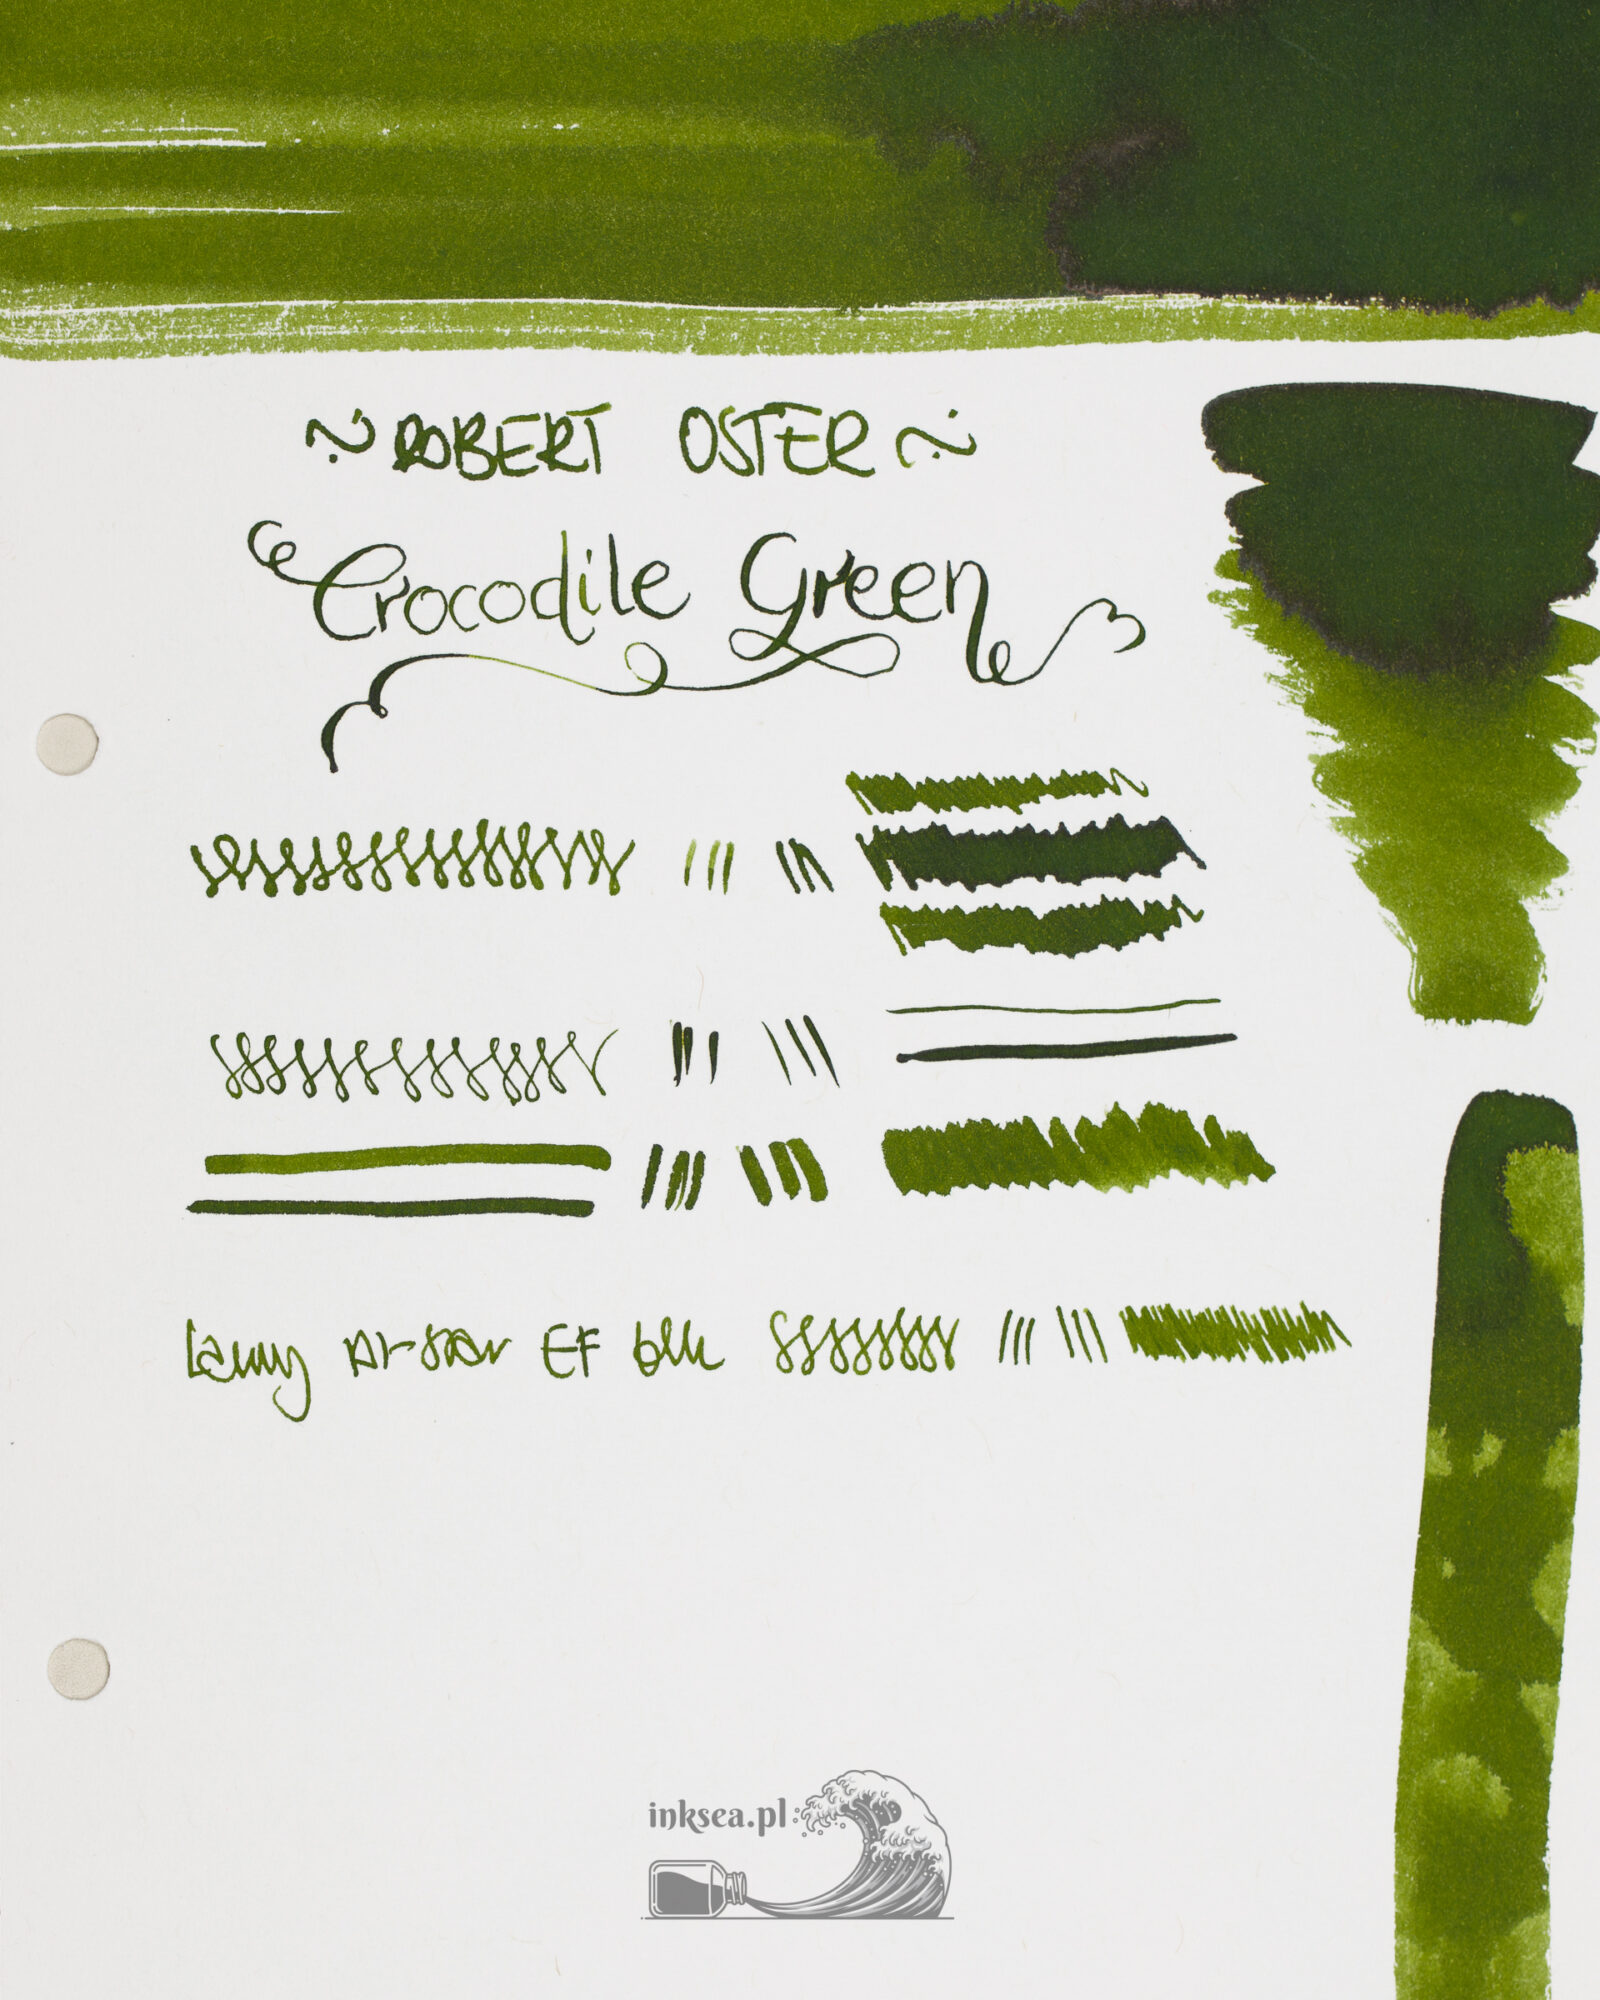 ~ ROBERT OSTER ~
Crocodile Green
Lamy Al-star EF blk
inksea.pl